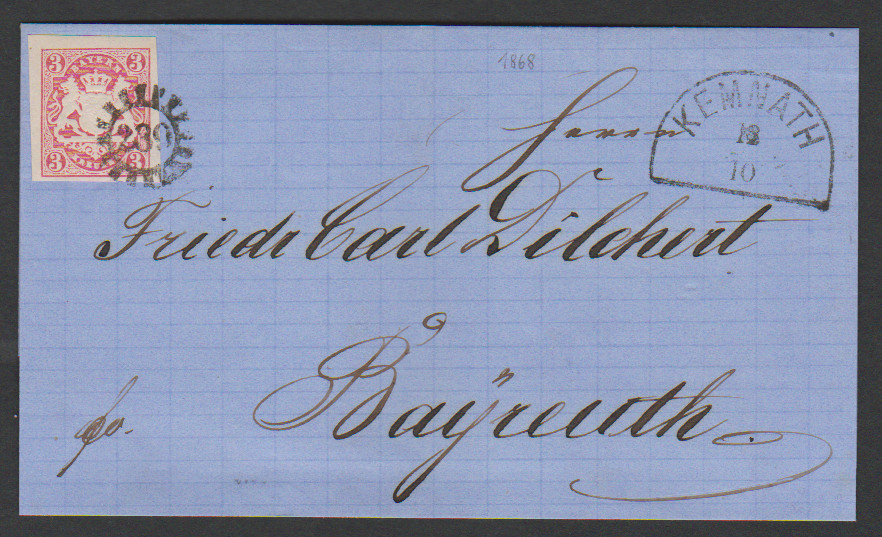 3 3
3 3
1868
KEMNATH
18
10
Herrn
Friedr Carl Dilchert
Bayreuth.